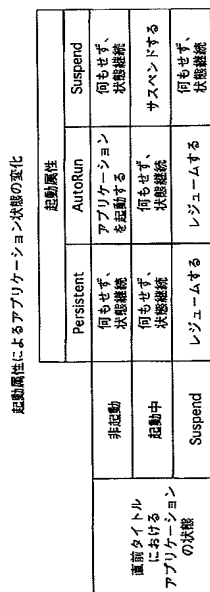 起動属性によるアプリケーション状態の変化
起動属性
Persistent
AutoRun
Suspend
直前タイトル
における
アプリケーション
の状態
非起動
何もせず、
状態継続
アプリケーション
を起動する
何もせず、
状態継続
起動中
何もせず、
状態継続
何もせず、
状態継続
サスペンドする
Suspend
レジュームする
レジュームする
何もせず、
状態継続